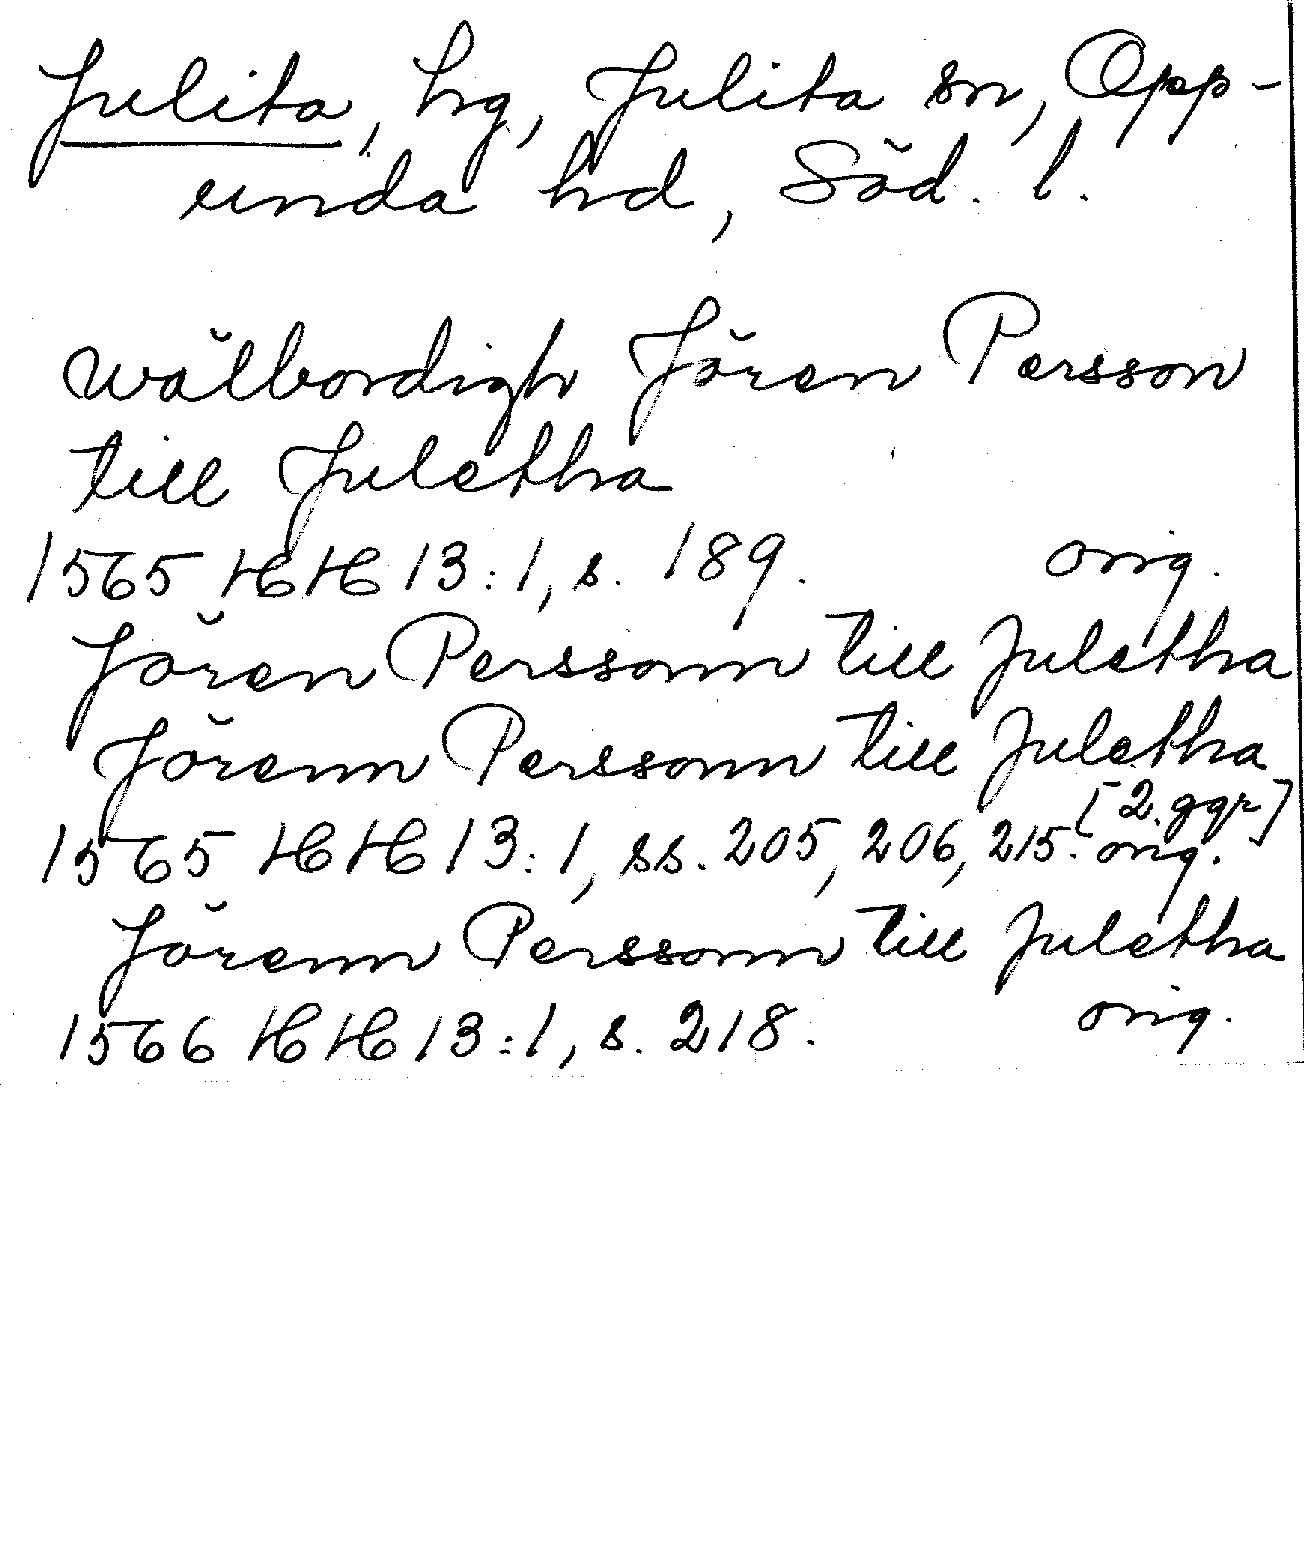 Julita, hg, Julita sn, Opp-
unda hd, Söd. l.
wälbordigh Jören Persson
till Juletha
1565 HH 13:1, s. 189. orig.
Jören Perssonn till Juletha
Jörenn Perssonn till Juletha
[2 ggr]
1565 HH 13:1, ss. 205, 206, 215. orig.
Jörenn Perssonn till Juletha
1566 HH 13:1, s. 218. orig.